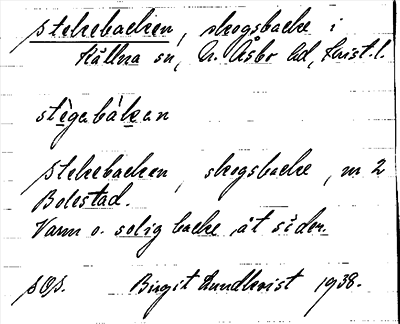 Stekebacken, skogsbacke i
Källna sn, N. Åsbo hd, Krist. l.
stègabákan
Stekebacken, skogsbacke, nr 2
Bolestad.
Varm o. solig backe åt söder.
SOS. Birgit Lundkvist 1938.